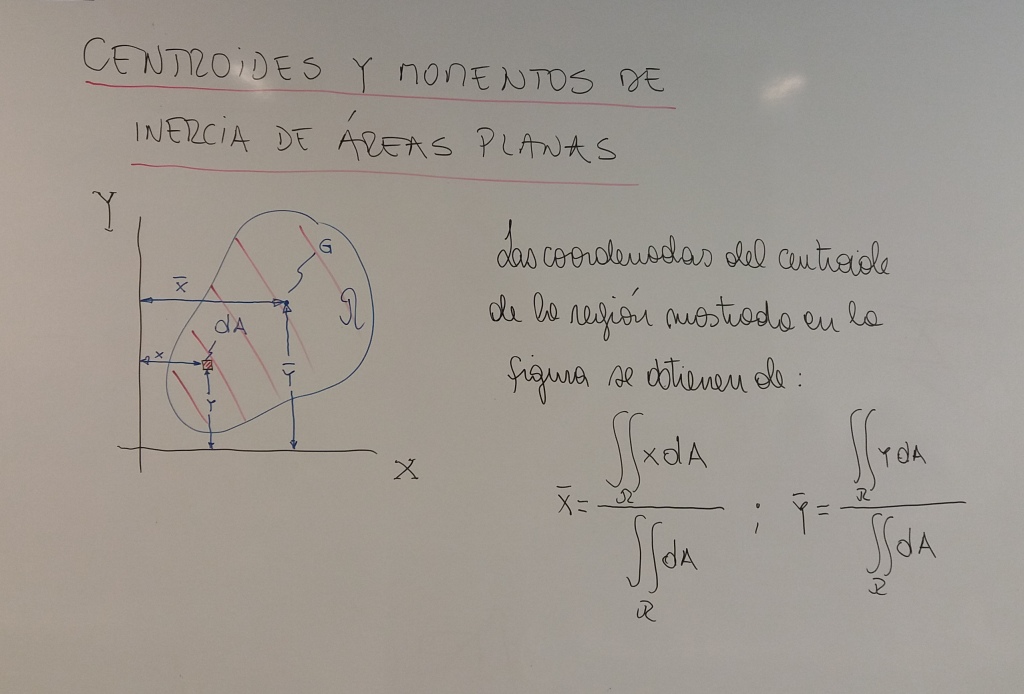 CENTROIDES Y MOMENTOS DE
INERCIA DE ÁREAS PLANAS
Y
G
x̄
R
dA
x
Ȳ
Y
X
Las coordenadas del centroide
de la región mostrada en la
figura se obtienen de:
X̄ = ∬_R x dA / ∬_R dA ; Ȳ = ∬_R Y dA / ∬_R dA